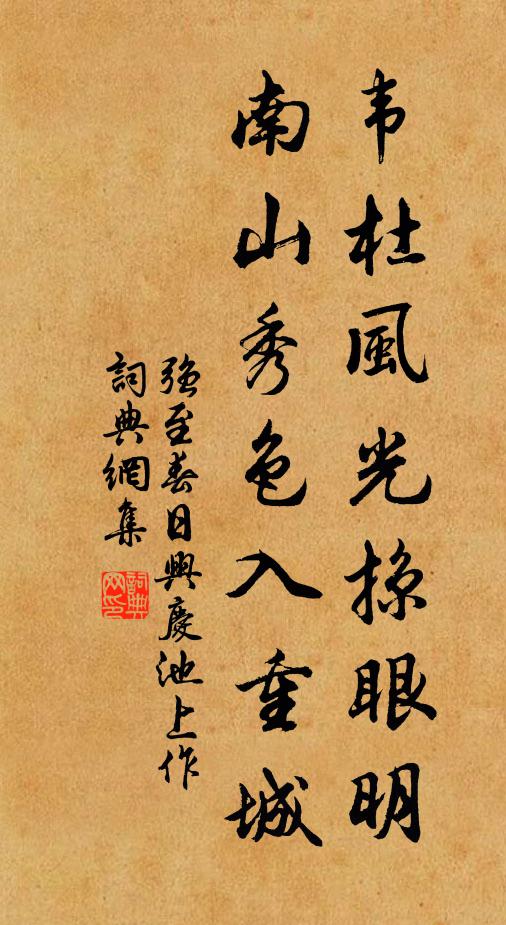 韦杜風光掠眼明
南山秀色入重城
強至春日興慶池上作
詞典網集
詞典网印